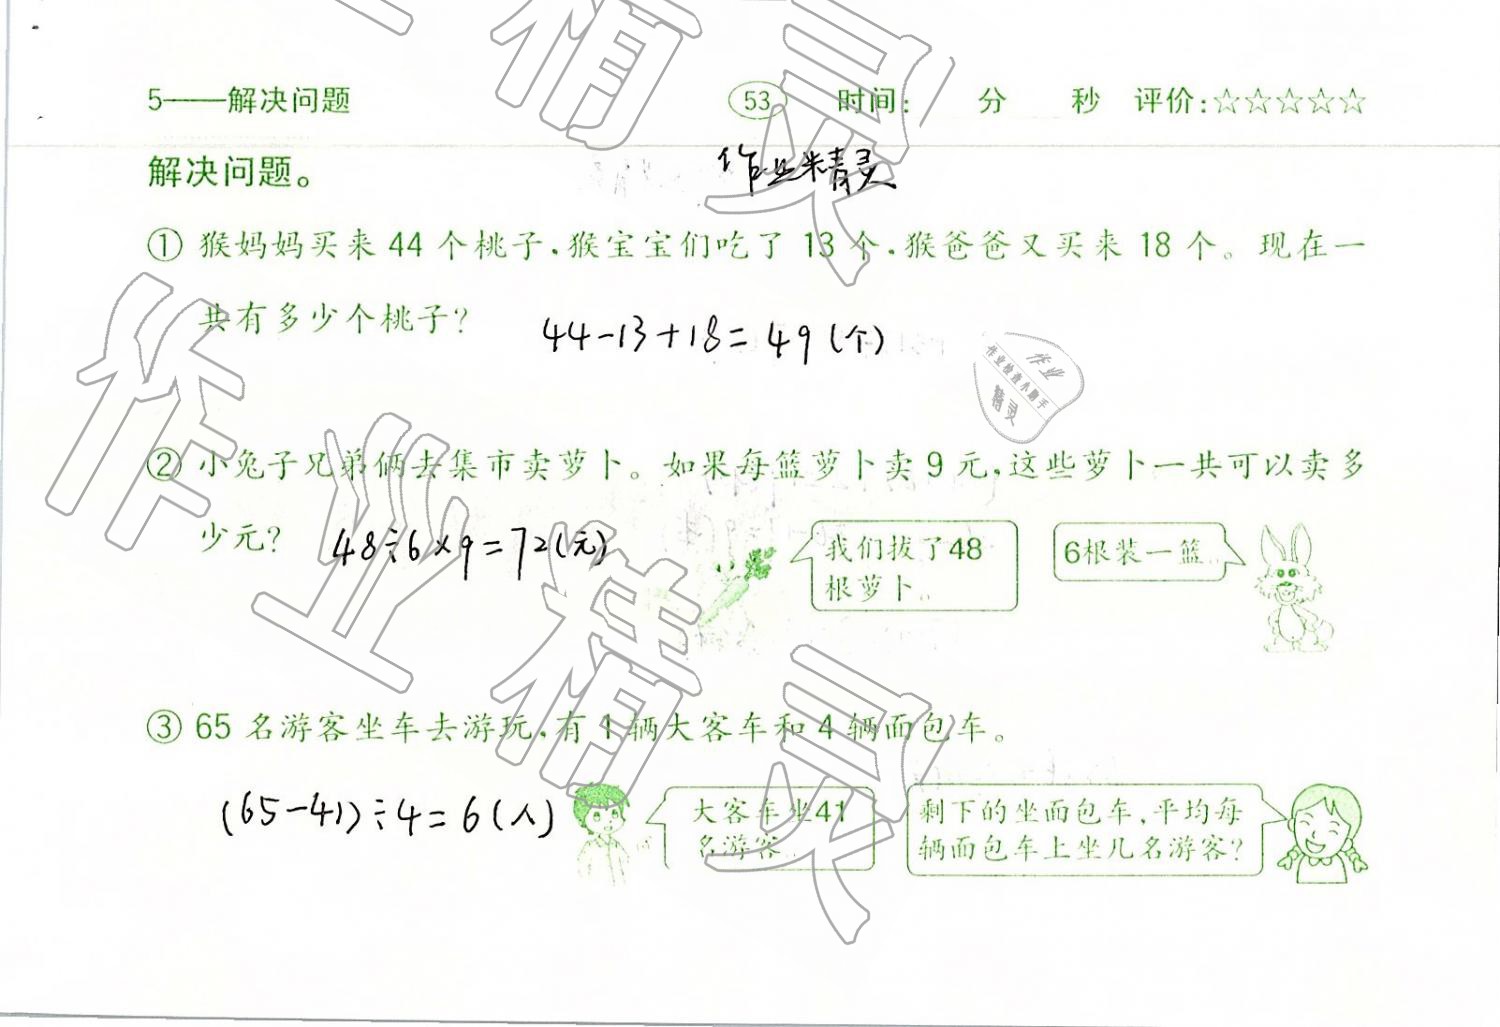 5——解决问题 53 时间: 分 秒 评价:☆☆☆☆☆
解决问题。
作业精灵
① 猴妈妈买来 44 个桃子,猴宝宝们吃了 13 个,猴爸爸又买来 18 个。现在一
共有多少个桃子?
44-13+18=49(个)
作业
作业检查小助手
精灵
② 小兔子兄弟俩去集市卖萝卜。如果每篮萝卜卖 9 元,这些萝卜一共可以卖多
少元?
48÷6×9=72(元)
我们拔了48
根萝卜。
6根装一篮。
③ 65 名游客坐车去游玩,有 1 辆大客车和 4 辆面包车。
(65-41)÷4=6(人)
大客车坐41
名游客
剩下的坐面包车,平均每
辆面包车上坐几名游客?
作业精灵
精灵